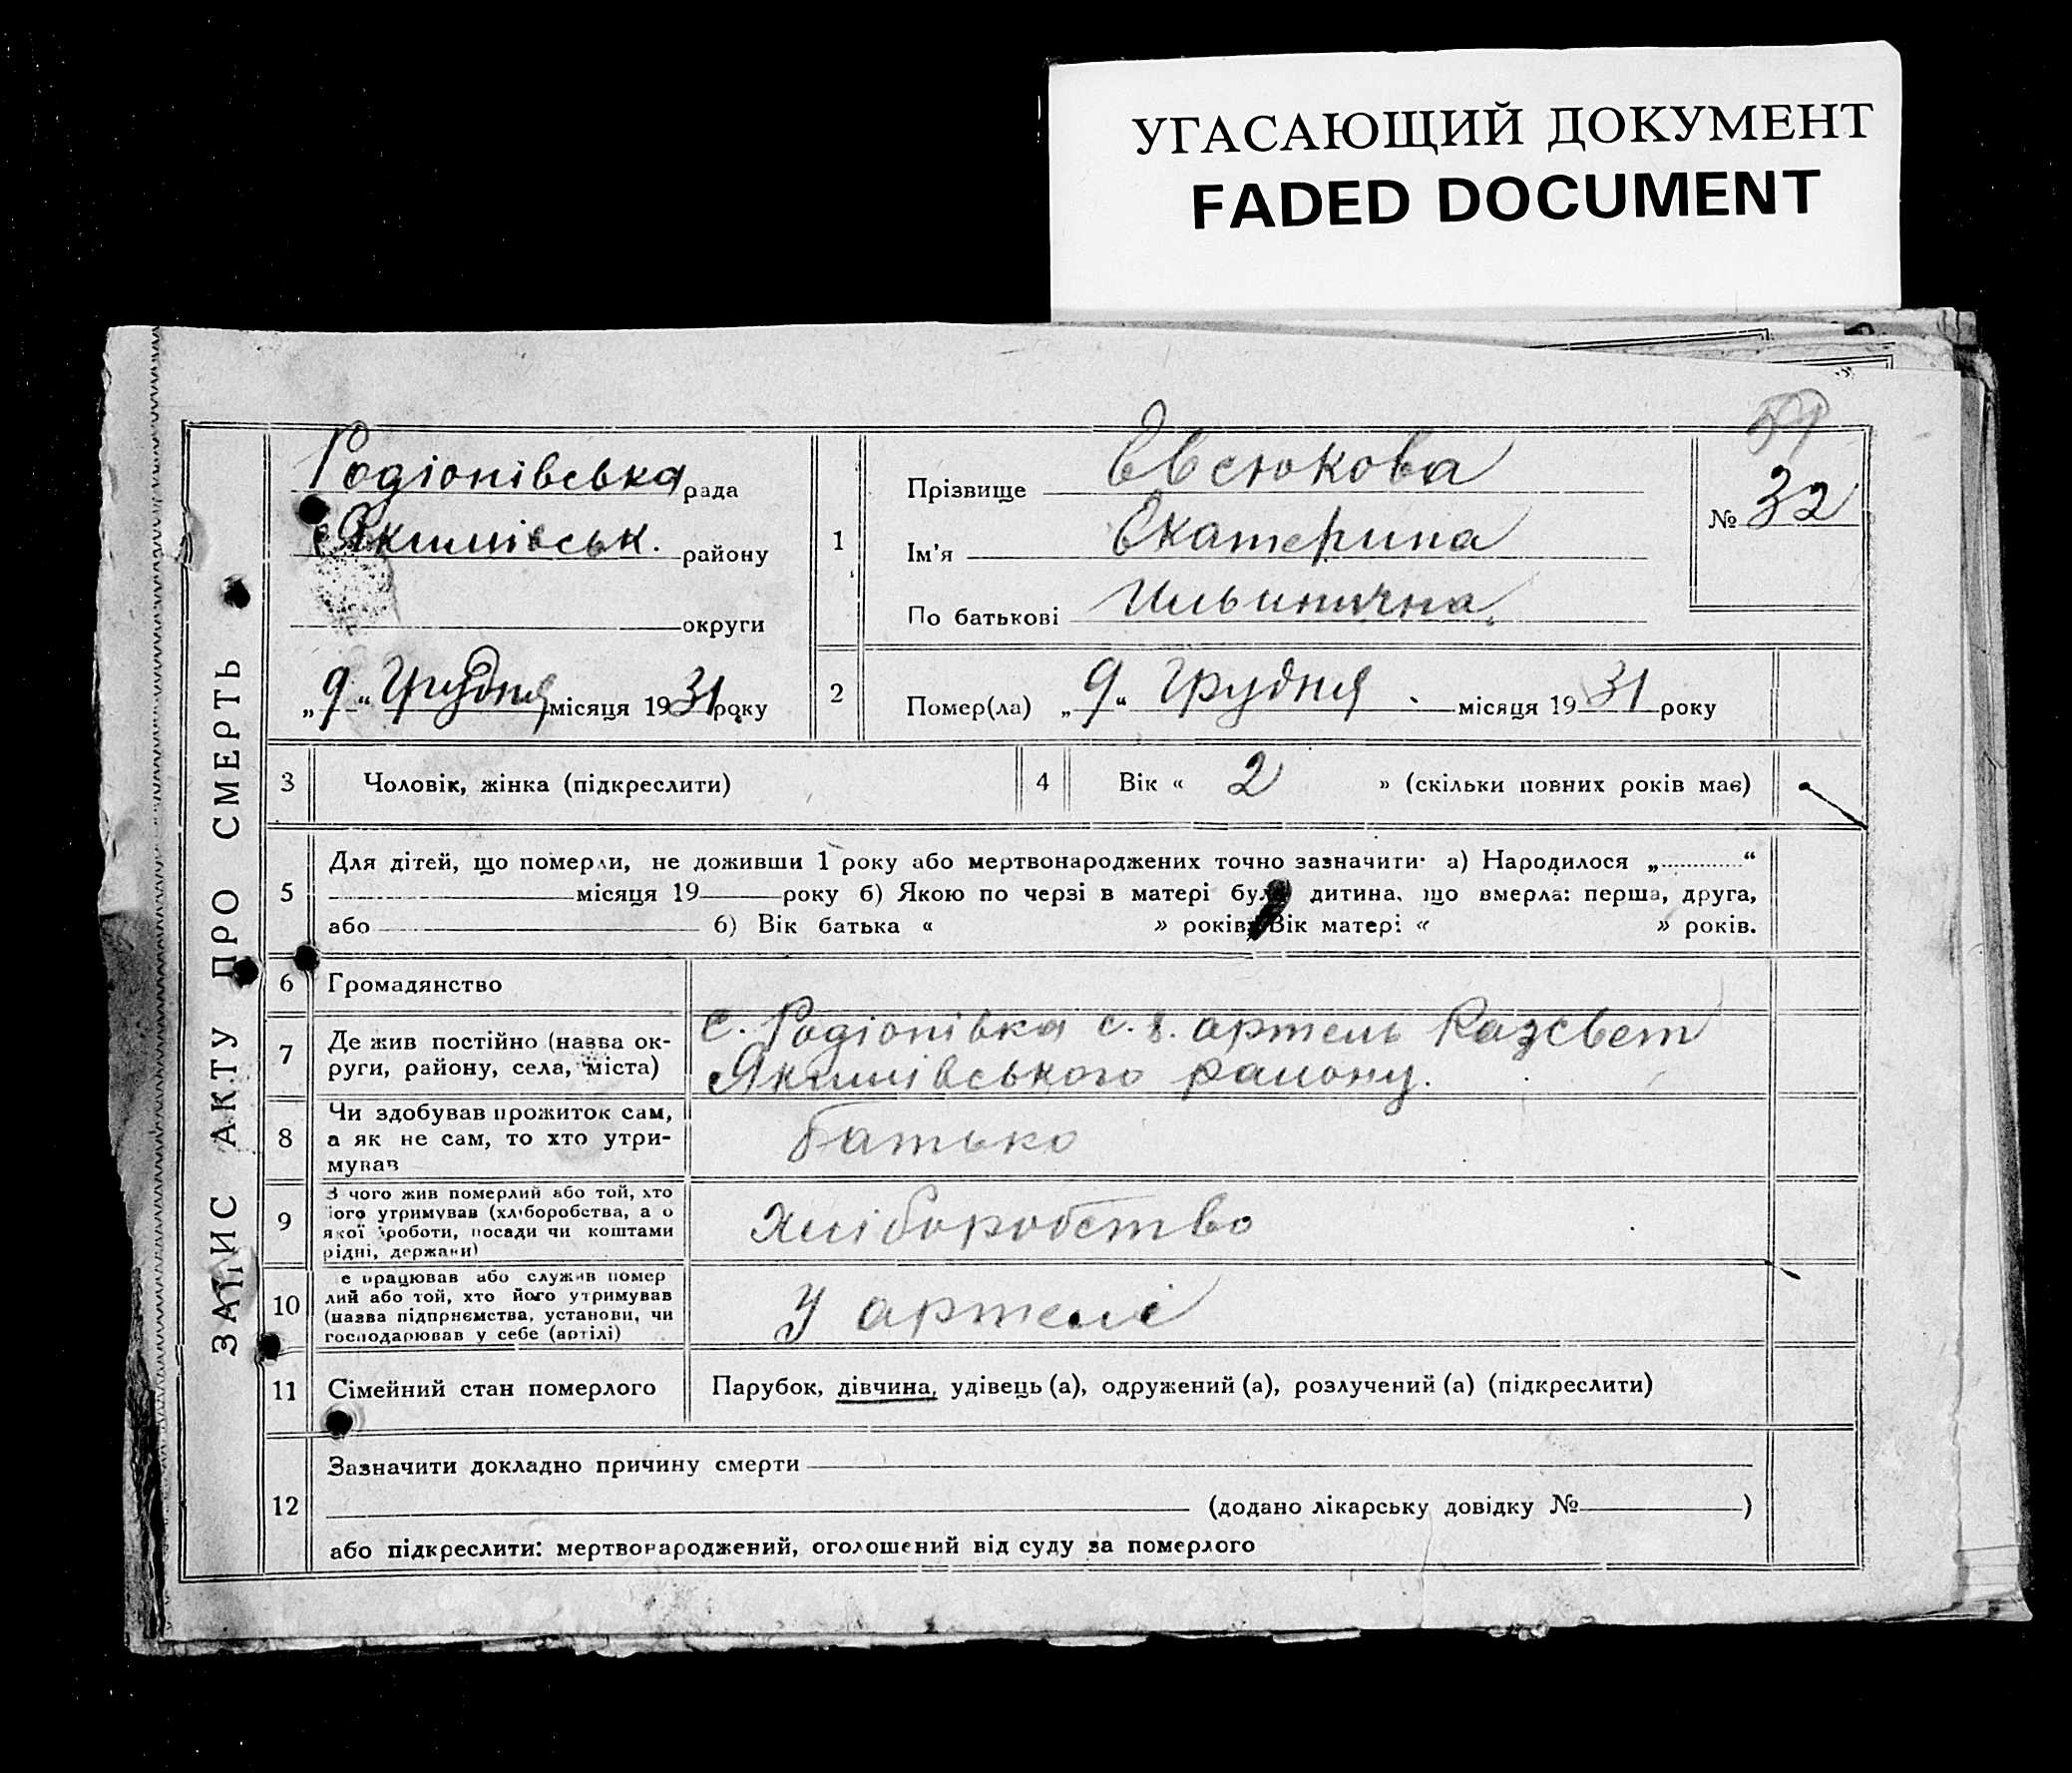 УГАСАЮЩИЙ ДОКУМЕНТ
FADED DOCUMENT
ЗАПИС АКТУ ПРО СМЕРТЬ
Родіонівська рада
Якимівськ. району
округи
„9“ Грудня місяця 1931 року
1
Прізвище Евсюкова
Ім'я Екатерина
По батькові Ильинична
59
№ 32
2
Помер(ла) „9“ Грудня місяця 1931 року
3
Чоловік, жінка (підкреслити)
4
Вік « 2 » (скільки повних років має)
5
Для дітей, що померли, не доживши 1 року або мертвонароджених точно зазначити: а) Народилося „ “
місяця 19 року б) Якою по черзі в матері була дитина, що вмерла: перша, друга,
або 6) Вік батька « » років Вік матері « » років.
6
Громадянство
7
Де жив постійно (назва ок-
руги, району, села, міста)
с. Родіонівка с. г. артель Разсвет
Якимівського району.
8
Чи здобував прожиток сам,
а як не сам, то хто утри-
мував
батько
9
З чого жив померлий або той, хто
його утримував (хліборобства, а о
якої роботи, посади чи коштами
рідні, держави)
хліборобство
10
е працював або служив помер
лий або той, хто його утримував
(назва підприємства, установи, чи
господарював у себе (артілі)
У артелі
11
Сімейний стан померлого
Парубок, дівчина, удівець (а), одружений (а), розлучений (а) (підкреслити)
12
Зазначити докладно причину смерти
(додано лікарську довідку № )
або підкреслити: мертвонароджений, оголошений від суду за померлого